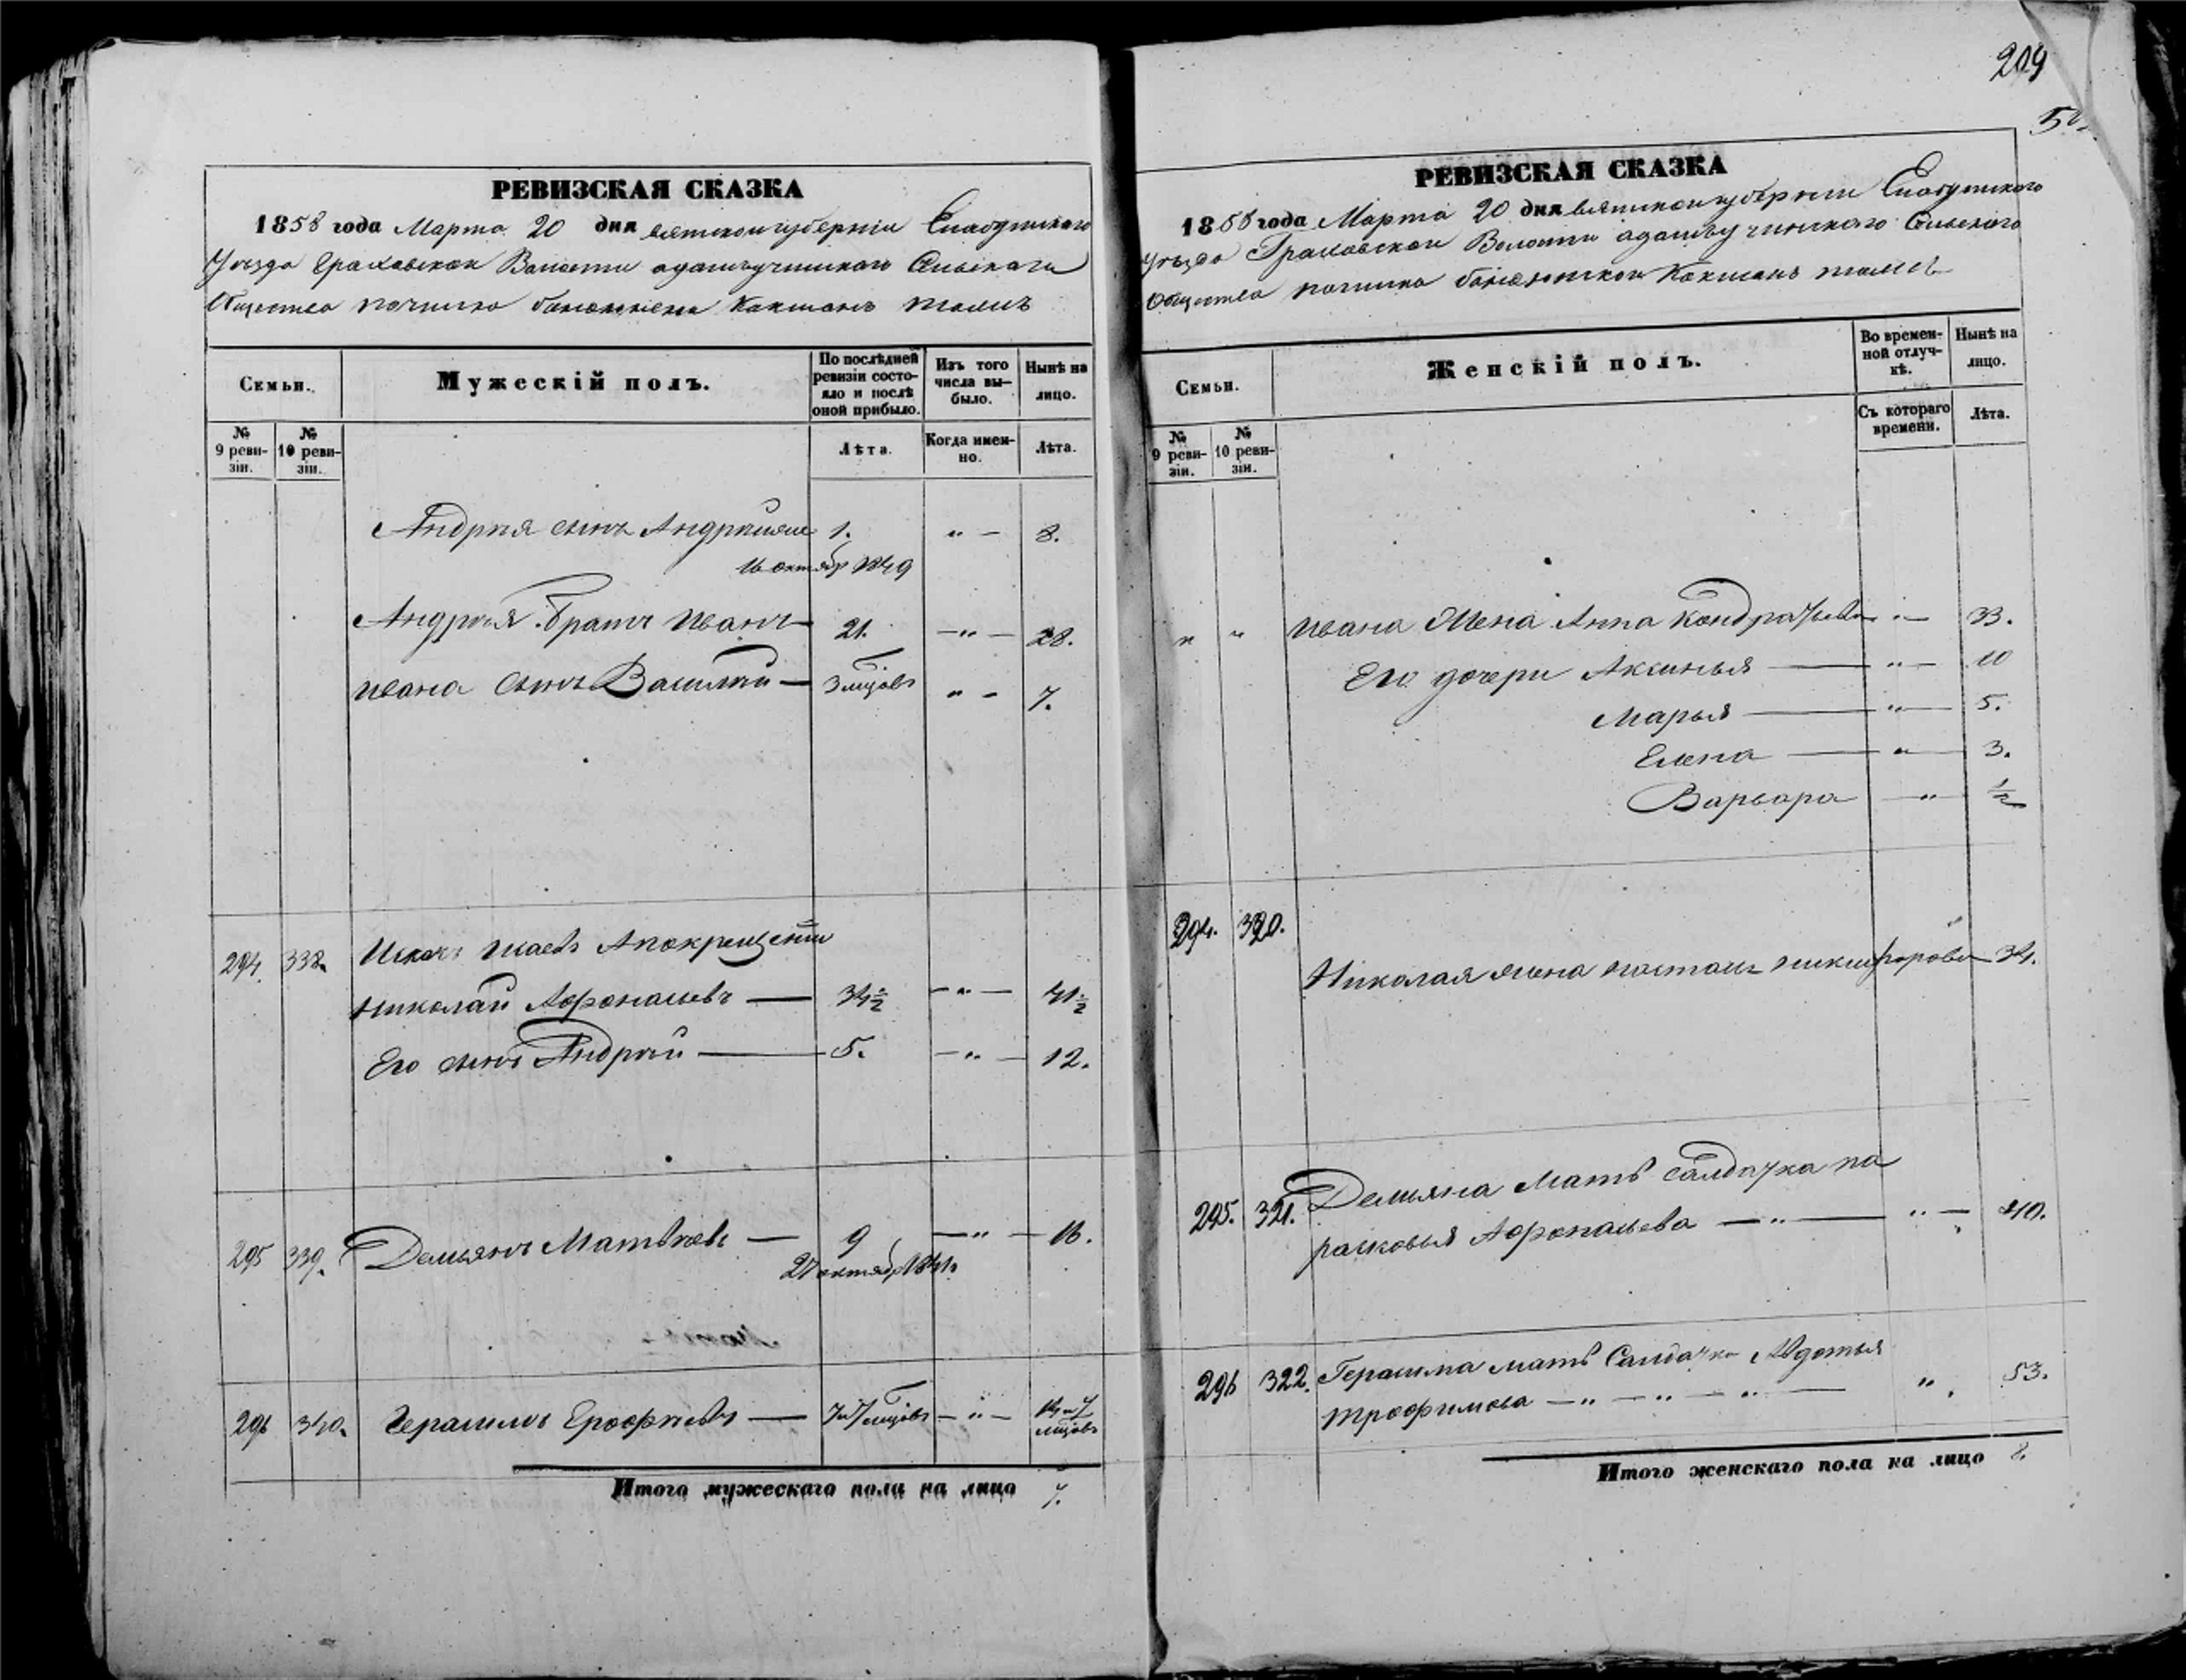 209
РЕВИЗСКАЯ СКАЗКА
1858 года Марта 20 дня вятской губерніи Елабужского
Уезда Граховской Волости Сельскаго
Общества починка
Семьи.
Мужескій полъ.
По послѣдней ревизіи состояло и послѣ оной прибыло.
Изъ того числа выбыло.
Нынѣ на лицо.
№ 9 ревизіи.
№ 10 ревизіи.
Лѣта.
Когда именно.
Лѣта.
Андрея сынъ 1. " — 8.
16 октябр 1849
Андрея братъ Иванъ 21. — " — 28.
Ивана сынъ Василий — 3 мцовъ " — 7.
294. 338.
Николай Афонасьевъ — 34½ — " — 41½
Его сынъ Андрей — 5. — " — 12.
295 339. Демьянъ Матвеевъ — 9 — " — 16.
27 октябр 1841
296 340. Герасимъ Ерофеевъ — 7 и 7 мцовъ — " — 14 и 7 мцовъ
Итого мужескаго пола на лицо 7.
РЕВИЗСКАЯ СКАЗКА
1858 года Марта 20 дня вятской губерніи Елабужского
уезда Граховской Волости Сельского
Общества починка
Семьи.
Женскій полъ.
Во временной отлучкѣ.
Нынѣ на лицо.
№ 9 ревизіи.
№ 10 ревизіи.
Съ котораго времени.
Лѣта.
" " Ивана жена Анна Кондратьева " — 33.
Его дочери Аксинья — " — 10
Марья — " — 5.
Елена — " — 3.
Варвара — " — ½
294. 320.
Николая жена никифорова " 34.
295. 321. Демьяна мать салдатка па
расковья Афонасьева — " — " — 40.
296 322. Герасима мать Салдатка Авдотья
трофимова — " — " — " — " . 53.
Итого женскаго пола на лицо 8.